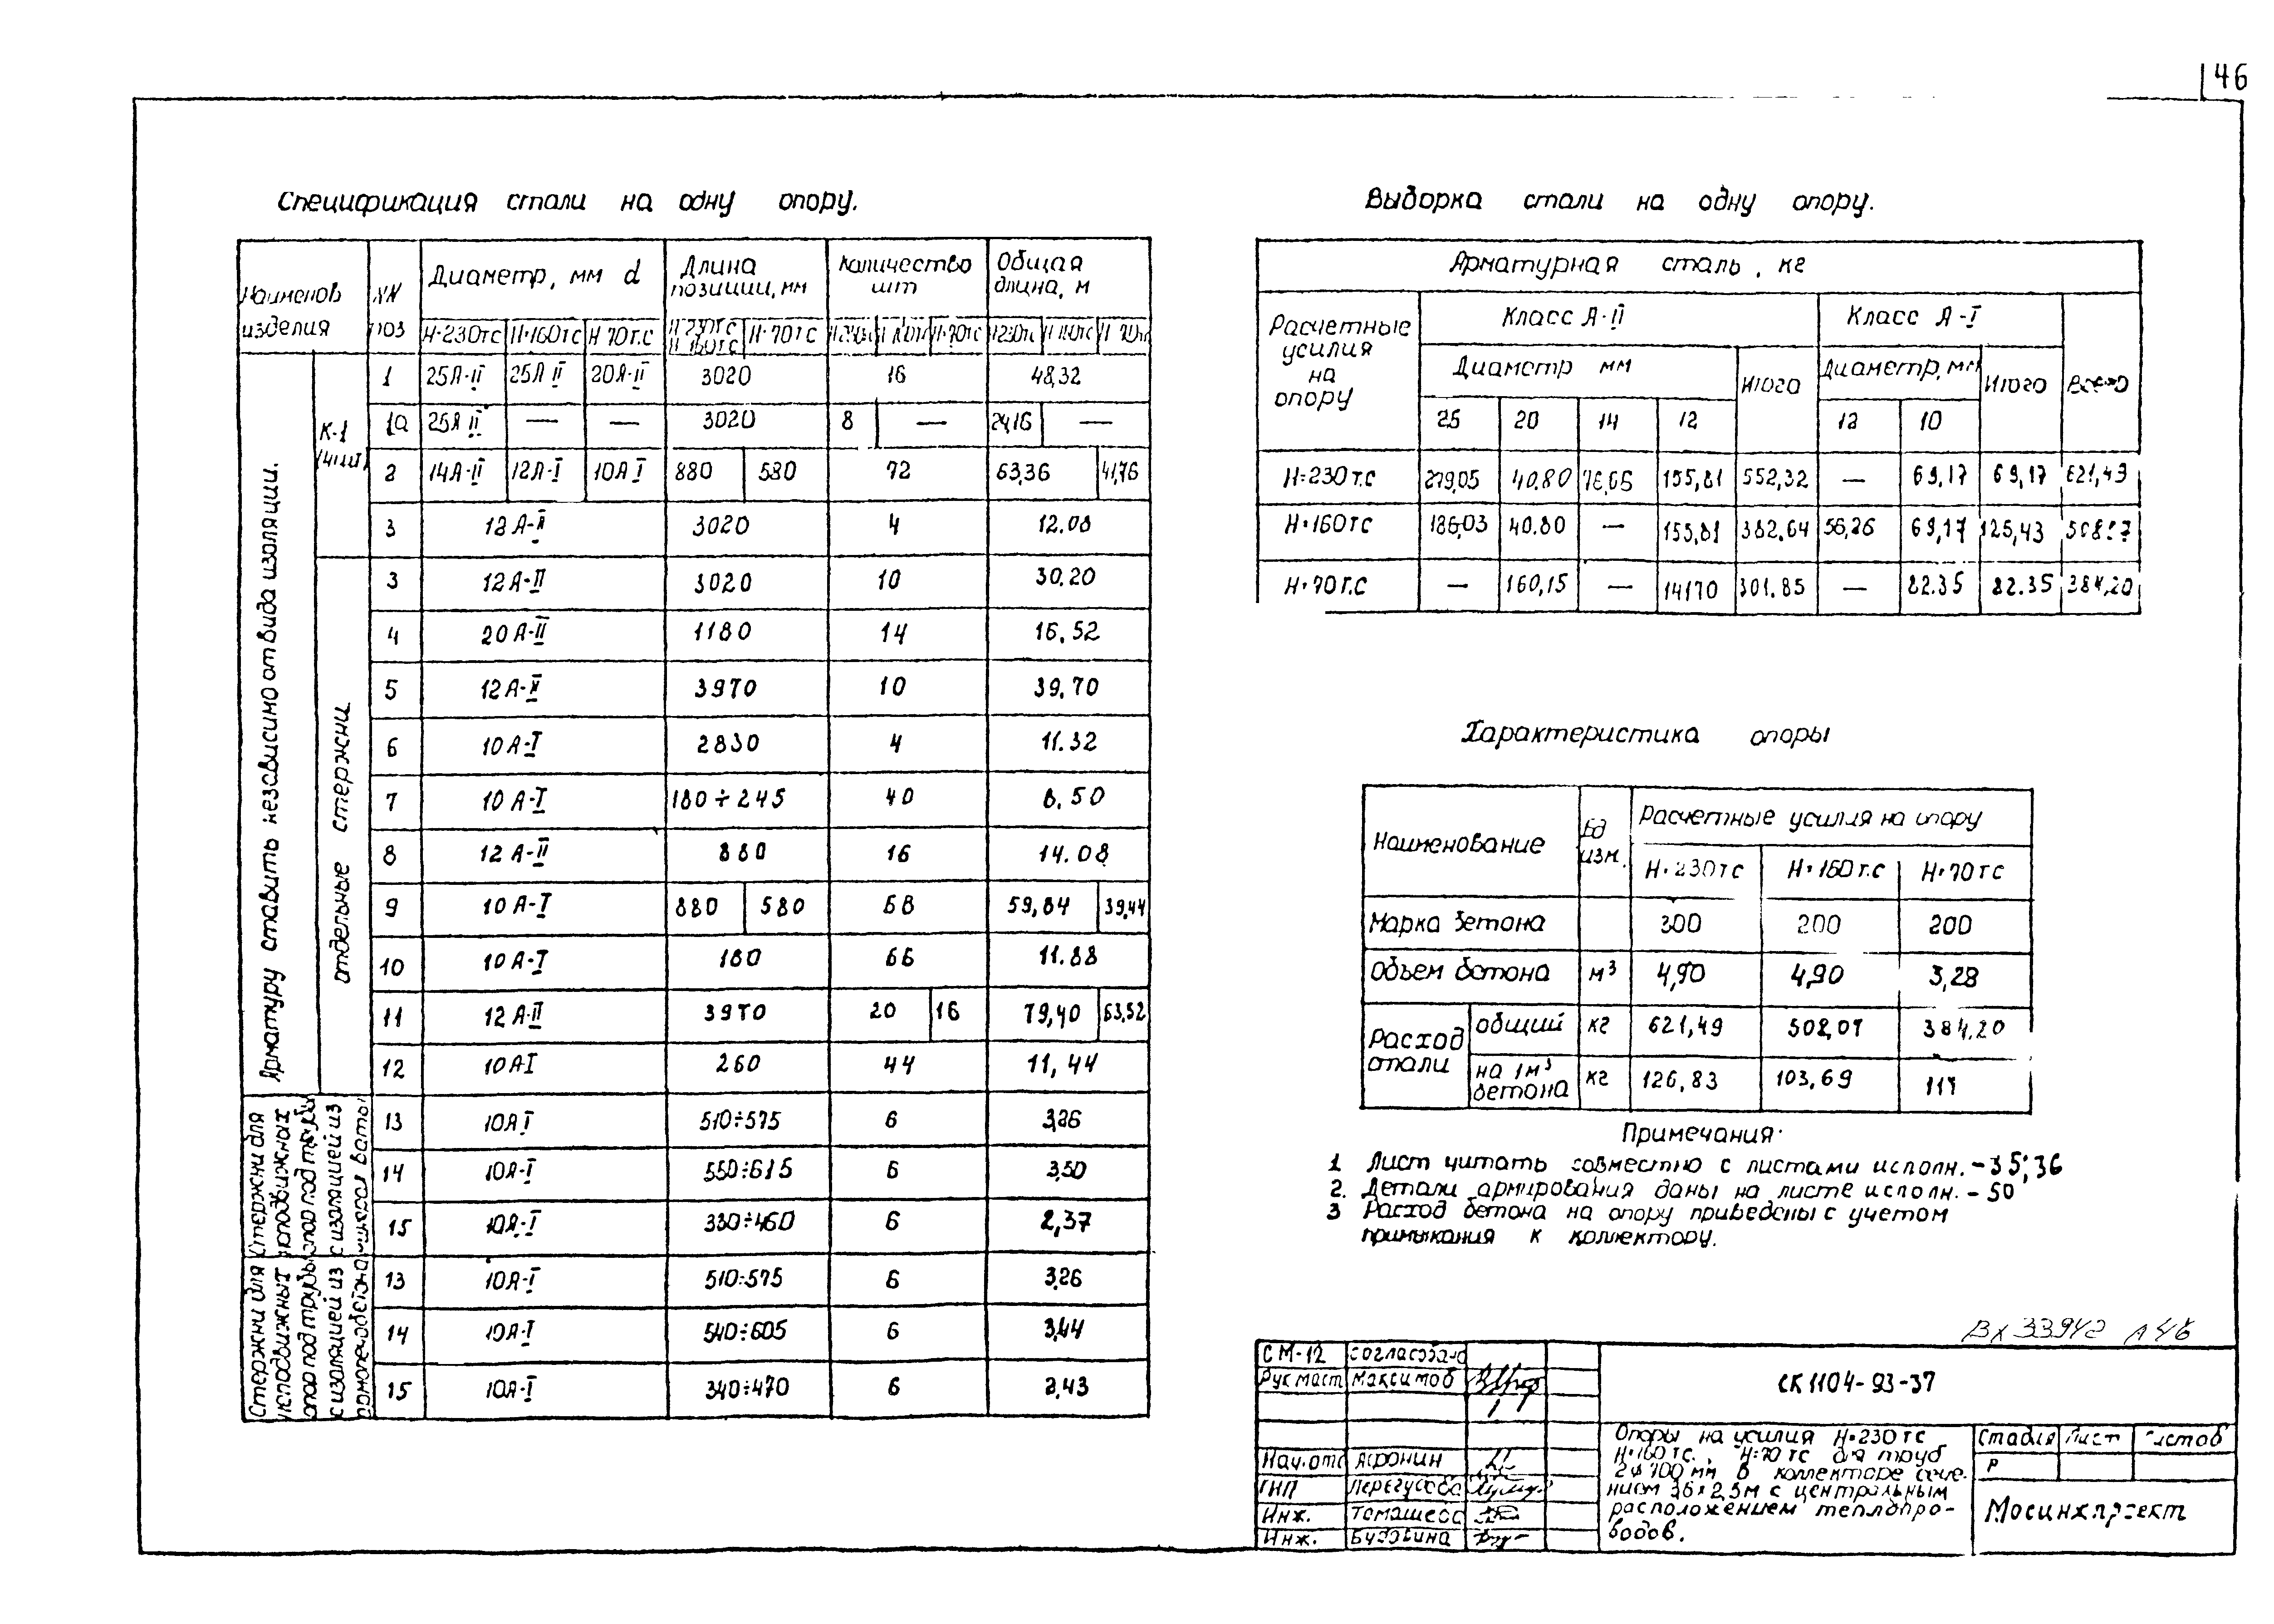 46
Спецификация стали на одну опору.
Наименов изделия | NN поз | Диаметр, мм d | Длина позиции, мм | Количество шт | Общая длина, м
Н=230тс | Н=160тс | Н=70т.с | Н=230тс Н=160тс | Н=70тс | Н=230тс | Н=160тс | Н=70тс | Н=230тс | Н=160тс | Н=70тс
Арматуру ставить независимо от вида изоляции.
К-1 (4шт)
1 | 25А-II | 25А II | 20А-II | 3020 | 16 | 48,32
1а | 25А II | — | — | 3020 | 8 | — | 24,16 | —
2 | 14А-II | 12А-I | 10А I | 880 | 580 | 72 | 63,36 | 41,76
3 | 12А-II | 3020 | 4 | 12.08
отдельные стержни
3 | 12А-II | 3020 | 10 | 30.20
4 | 20А-II | 1180 | 14 | 16.52
5 | 12А-II | 3970 | 10 | 39.70
6 | 10А-I | 2830 | 4 | 11.32
7 | 10А-I | 180÷245 | 40 | 8.50
8 | 12А-II | 880 | 16 | 14.08
9 | 10А-I | 880 | 580 | 68 | 59,84 | 39,44
10 | 10А-I | 180 | 66 | 11.88
11 | 12А-II | 3970 | 20 | 16 | 79,40 | 63,52
12 | 10АI | 260 | 44 | 11,44
Стержни для неподвижных опор под трубы с изоляцией из
13 | 10А I | 510÷575 | 6 | 3,26
14 | 10А-I | 550÷615 | 6 | 3,50
15 | 10А-I | 330÷460 | 6 | 2,37
Стержни для неподвижных опор под трубы с изоляцией из армопенобетона
13 | 10А-I | 510÷575 | 6 | 3,26
14 | 10А-I | 540÷605 | 6 | 3,44
15 | 10А-I | 340÷470 | 6 | 2,43
Выборка стали на одну опору.
Арматурная сталь, кг
Расчетные усилия на опору | Класс А-II | Класс А-I | Всего
Диаметр мм | Итого | Диаметр, мм | Итого
25 | 20 | 14 | 12 | 12 | 10
Н=230т.с | 279,05 | 40.80 | 76,66 | 155,81 | 552,32 | — | 69,17 | 69,17 | 621,49
Н=160тс | 186,03 | 40.80 | — | 155,81 | 382,64 | 56,26 | 69,17 | 125,43
Н=70т.с | — | 160,15 | — | 141,70 | 301.85 | — | 82.35 | 82.35 | 384,20
Характеристика опоры
Наименование | Ед изм. | Расчетные усилия на опору
Н=230тс | Н=160т.с | Н=70тс
Марка бетона | 300 | 200 | 200
Объем бетона | м³ | 4,90 | 4,90 | 3,28
Расход стали | общий | кг | 621,49 | 508,07 | 384,20
на 1м³ бетона | кг | 126,83 | 103,69 | 117
Примечания:
1 Лист читать совместно с листами исполн.-35;36
2. Детали армирования даны на листе исполн.-50
3 Расход бетона на опору приведены с учетом
примыкания к коллектору.
Вх 33942 л 46
СМ-12 | согласовано
Рук маст | Максимов
Нач.отд | Афонин
ГИП | Перегудова
Инж. | Томашева
Инж. | Будовина
СК1104-93-37
Опоры на усилия Н=230тс
Н=160тс., Н=70тс для труб
2ф700мм в коллекторе сече-
нием 3,6х2,5м с центральным
расположением теплопро-
водов.
Стадия | Лист | Листов
Р
Мосинжпроект